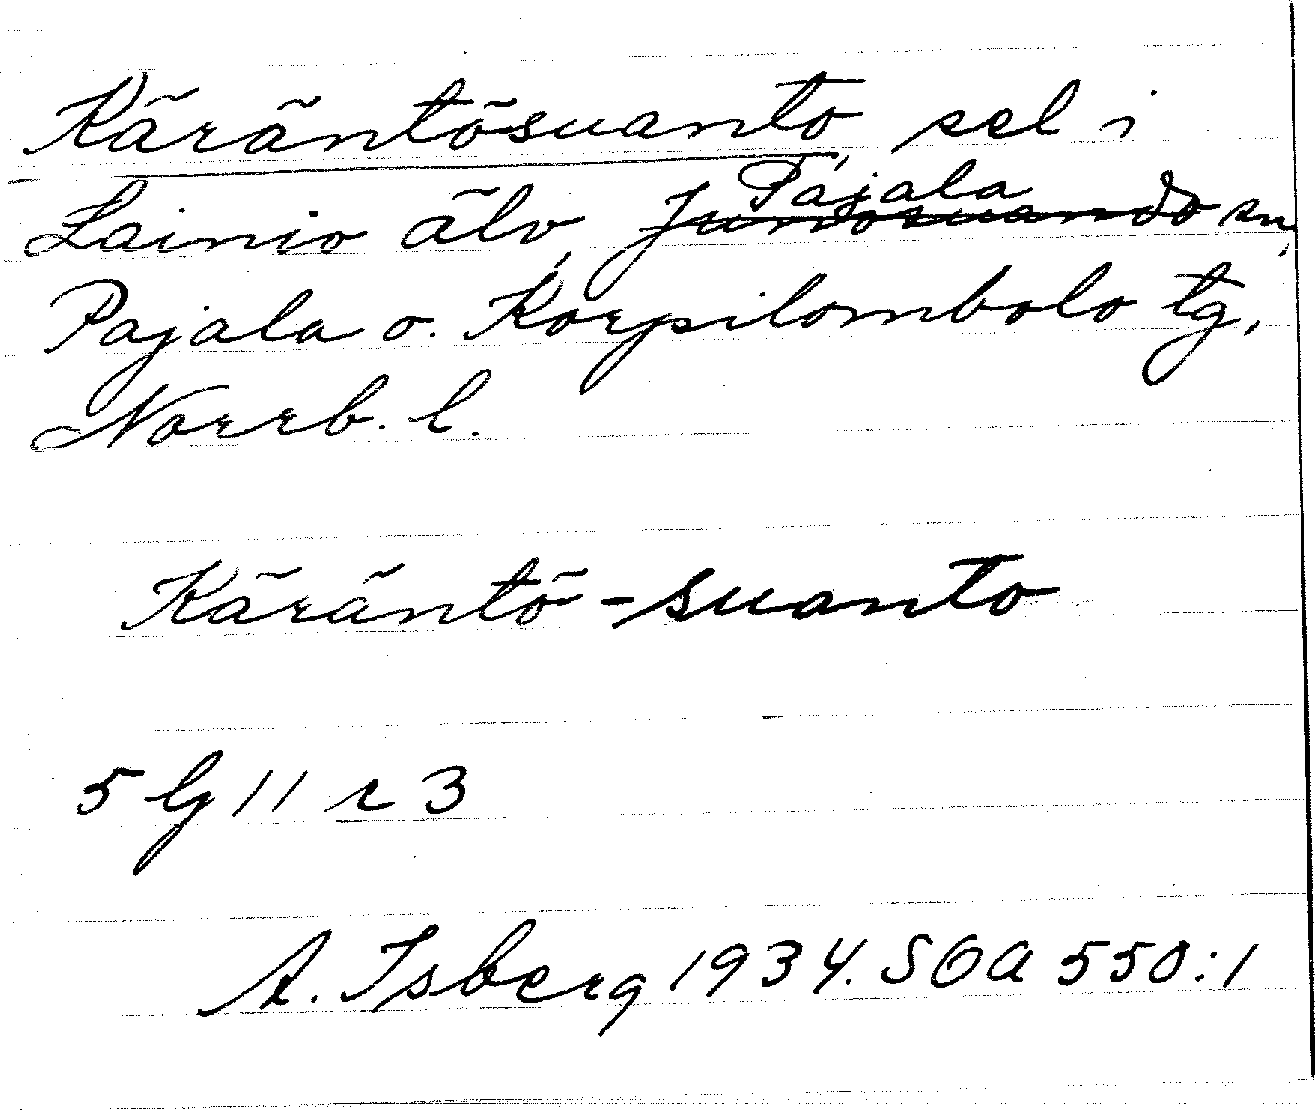 Käräntösuanto, sel i
Lainio älv, Pajala sn,
Pajala o. Korpilombolo tg,
Norrb. l.
Käräntö-suanto
5 G 11 r 3
A. Isberg 1934. SOA 550:1